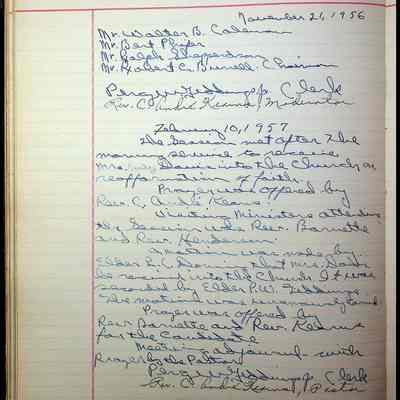 November 21, 1956
Mr. Walter B. Coleman
Mr. Bert Phifer
Mr. Ralph Shepperdson
Mr. Robert C. Burrell. Chairman
Percy W. Giddings, Clerk
Rev. C. André Kearns, Moderator
February 10, 1957
The Session met after the
morning service to receive
Mrs. Davis into the Church on
reaffirmation of faith.
Prayer was offered by
Rev. C. André Kearns.
Visiting Ministers attending
the Session were Rev. Barnette
and Rev. Henderson.
A motion was made by
Elder R. C. that Mrs. Davis
be received into the Church. It was
seconded by Elder P.W. Giddings
The motion was
Prayer was offered by
Rev. Barnette and Rev. Kearns
for the Candidate
Meeting adjourned with
Prayer by the Pastor
Percy W. Giddings, Clerk
Rev. C. André Kearns, Pastor